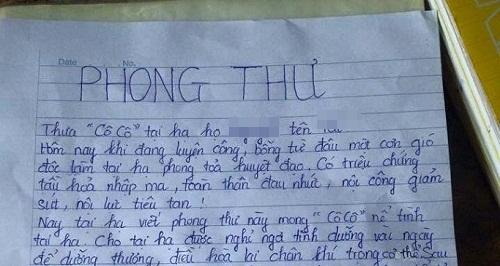 Date No.
PHONG THƯ
Thưa "Cô Cô" tại hạ họ tên
Hôm nay khi đang luyện công, bỗng từ đâu một cơn gió
độc làm tại hạ phong toả huyệt đạo. Có triệu chứng
tẩu hoả nhập ma, toàn thân đau nhức, nội công giảm
sút, nội lực tiêu tan!
Nay tại hạ viết phong thư này mong "Cô Cô" nể tình
tại hạ. Cho tại hạ được nghỉ ngơi tĩnh dưỡng vài ngày
để dưỡng thương, điều hoà lại chân khí trong cơ thể. Sau